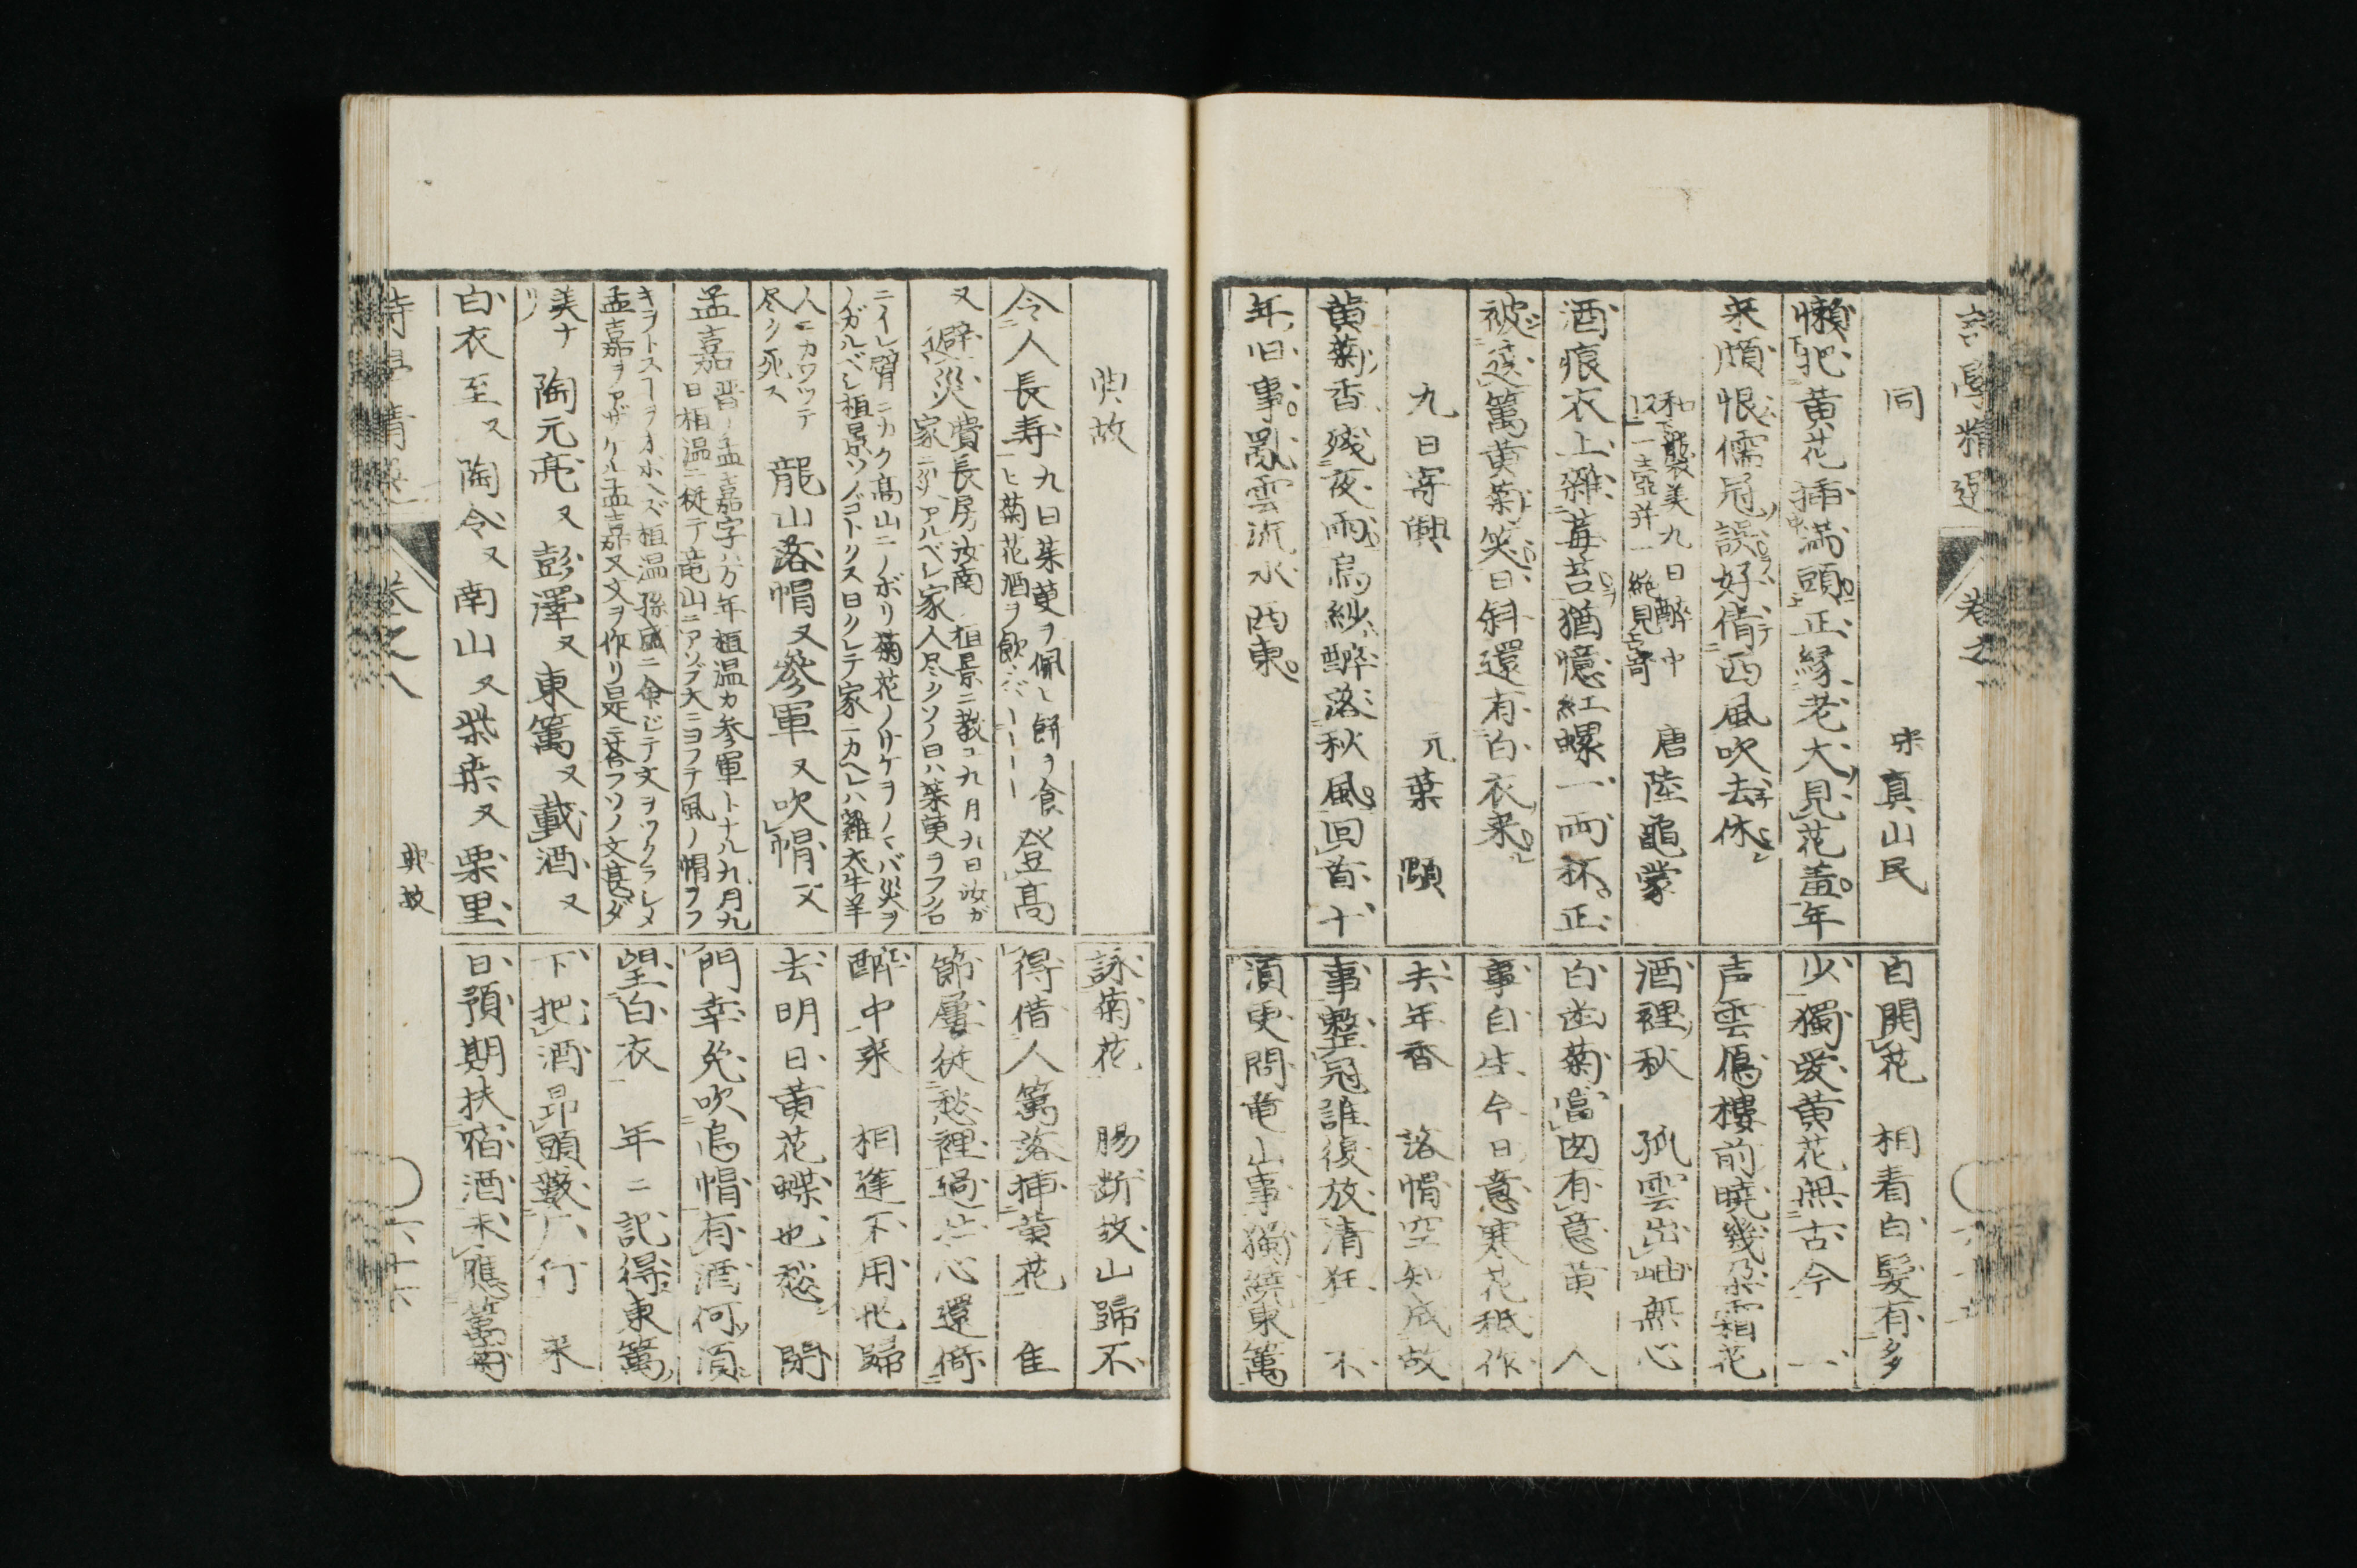 同　宋真山民
懶把黄花插満頭正縁老大見花羞年
来頗恨儒冠誤好倩西風吹去休
和襲美九日醉中
一壺并一絶見寄
唐陸龜蒙
酒痕衣上雜莓苔猶憶紅螺一両杯正
被遶籬黄菊笑日斜還有白衣来
九日寄興　元葉顒
黄菊香殘夜雨烏紗醉落秋風回首十
年旧事亂雲流水西東
自開花　相看白髪有多
少獨愛黄花無古今　一
声雲雁樓前曉幾朶霜花
酒裡秋　孤雲出岫無心
白　菊當　有意黄　人
事自生今日意寒花秖作
去年香　落帽空知成故
事整冠誰復放清狂　不
須更問竜山事獨繞東籬
典故
令人長寿
九日茱萸ヲ佩ヒ餅ヲ食
ヒ菊花酒ヲ飲
登高
又避災
費長房汝南ノ桓景ニ教ユ九月九日汝ガ
家ニ災アルベシ家人尽クソノ日ハ茱萸ヲフクロ
ニイレ臂ニカク高山ニノボリ菊花ノサケヲノマバ災ヲ
ノガルベシ桓景ソノゴトクス日クレテ家ニカヘレハ雞犬牛羊
人ニカワツテ
尽ク死ス
龍山落帽又參軍又吹帽又
孟嘉
晋ノ孟嘉字ハ万年桓温カ参軍トナル九月九
日桓温ニ従テ竜山ニアソブ大ニヨフテ風ノ帽ヲフ
キヲトスヿヲオホヘズ桓温孫盛ニ命ジテ文ヲツクラシメ
孟嘉ヲアザケル孟嘉又文ヲ作リ是ニ荅フソノ文甚ダ
美ナ
リ
陶元亮又彭澤又東籬又載酒又
白衣至又陶令又南山又柴桑又栗里
詠菊花　腸断故山歸不
得借人籬落插黄花　隹
節屢從愁裡過　心還倚
醉中来　相逢不用　歸
去明日黄花蝶也愁　閉
門幸免吹烏帽有酒何須
望白衣　年々記得東籬
下把酒昂頭數厂行　来
日預期扶宿酒未應籬菊
卷之八　典故　六十六